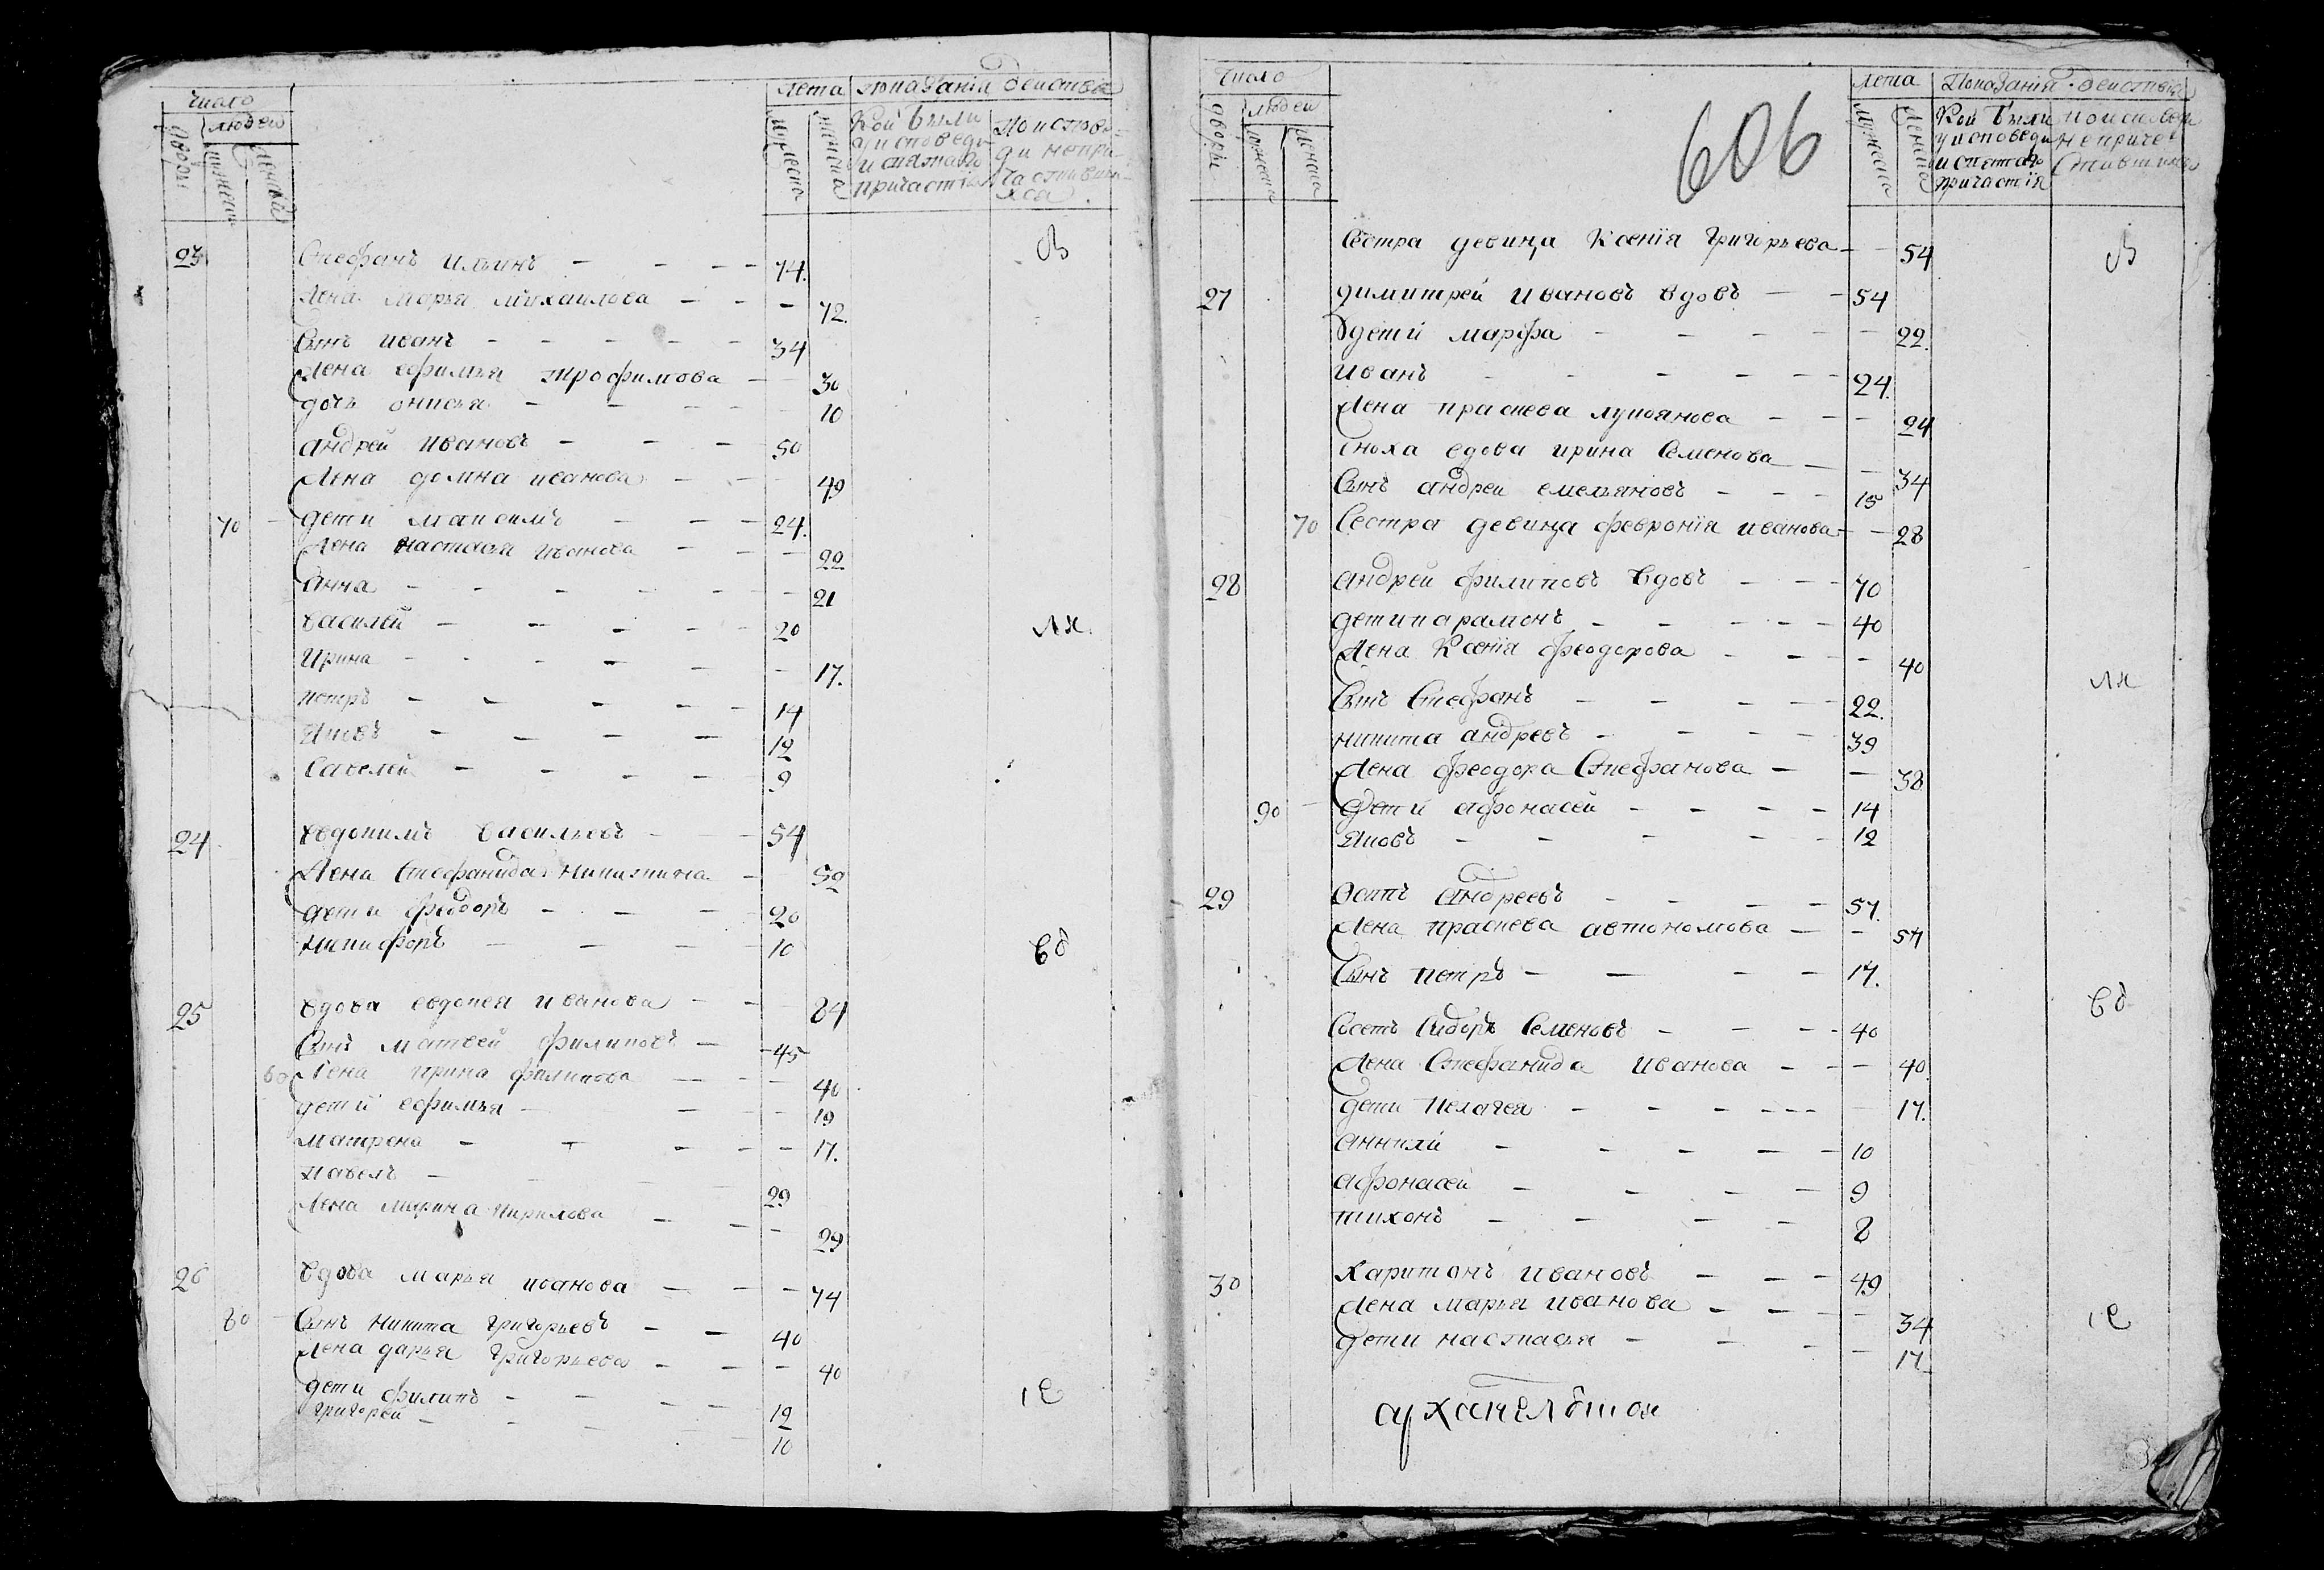 число
лета показанія действа
дворы
людей
мужеска
женска
мужеска
женска
Кои были
у исповеди
и святаго
причастія
По испове-
ди непри-
частивши-
хся
23 Стефанъ Ильинъ 74.
Жена Марья Михаилова 72.
Сынъ Иванъ 34
Жена Ефимья Трофимова 30
дочь Онисья 10
Андрей Ивановъ 50
Жена домна иванова 49
70 дети Максимъ 24.
Жена Настасья Иванова 22
Анна 21
Василей 20
Ирина 17.
петръ 14
Яковъ 12
Савелей 9
24 Евдокимъ Васильевъ 54
Жена Стефанида Никитина 50
дети феодоръ 20
Никифоръ 10
25 Вдова евдокея иванова 84
Сынъ Матвей Филиповъ 45
60 Жена Ирина филипова 40
дети Ефимья 19
Матрена 17.
Павелъ 29
Жена Марина Кирилова 29
26 Вдова Марья иванова 74
80 Сынъ Никита Григорьевъ 40
Жена дарья Григорьева 40
дети филипъ 12
Григорей 10
В
вд
число
606
лета Показанія действа
дворы
людей
мужеска
женска
мужеска
женска
Кои были
у исповеди
и святаго
причастія
по исповеди
непричас
тившихся
Сестра девица Ксенїя Григорьева 54
В
27 димитрей ивановъ вдовъ 54
дети марфа 22.
Иванъ 24.
Жена праскева лукоянова 24
Сноха вдова ирина Семенова 34
Сынъ андреи емельяновъ 15
70 Сестра девица февронїя иванова 28
28 Андрей филиповъ Вдовъ 70
дети парамонъ 40
Жена Ксенїя феодорова 40
Сынъ Стефанъ 22.
Никита андревъ 39
Жена феодора Стефанова 38
90 дети афонасей 14
Яковъ 12
29 Осипъ Андреевъ 57.
Жена праскева автономова 54
Сынъ петръ 17.
вд
Сидоръ Семеновъ 40
Жена Стефанида Иванова 40.
дети Пелагея 17.
Аникей 10
афонасей 9
тихонъ 8
30 Харитонъ ивановъ 49
Жена марья иванова 34
дети настасья 17